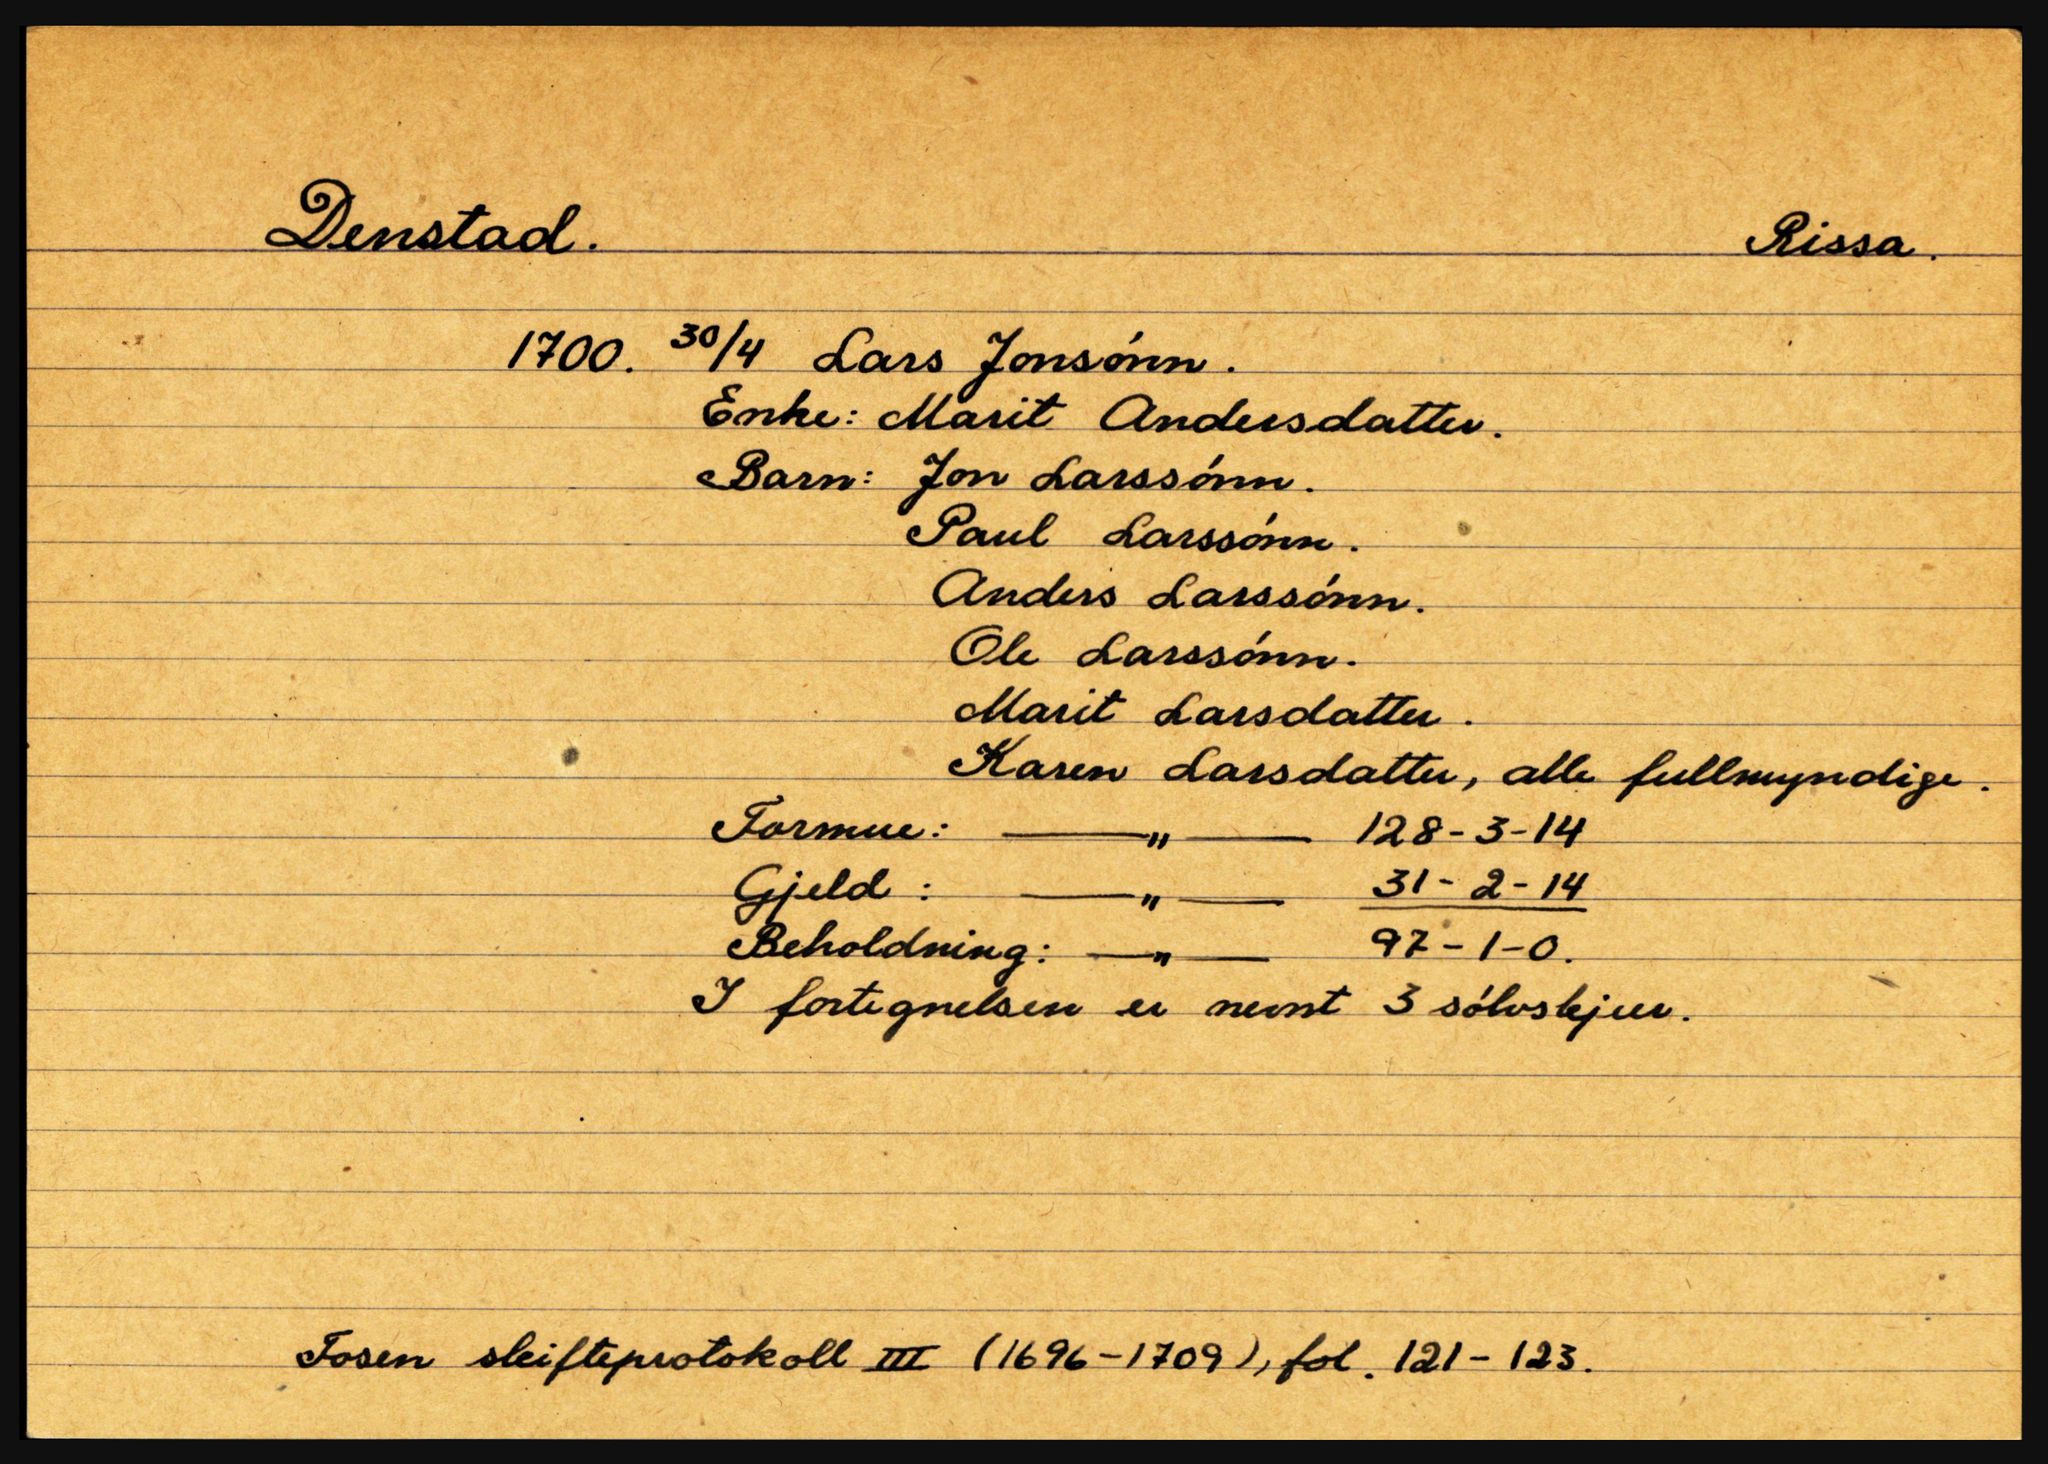 Denstad. Rissa.
1700. 30/4 Lars Jonsónn.
Enke: Marit Andersdatter.
Barn: Jon Larssónn.
Paul Larssónn.
Anders Larssónn.
Ole Larssónn.
Marit Larsdatter.
Karen Larsdatter, alle fullmyndige.
Formue: —— " —— 128-3-14
Gjeld: —— " —— 31-2-14
Beholdning: — " — 97-1-0.
I fortegnelsen er nevnt 3 sólvskjeer.
Fosen skifteprotokoll III (1696-1709), fol. 121-123.